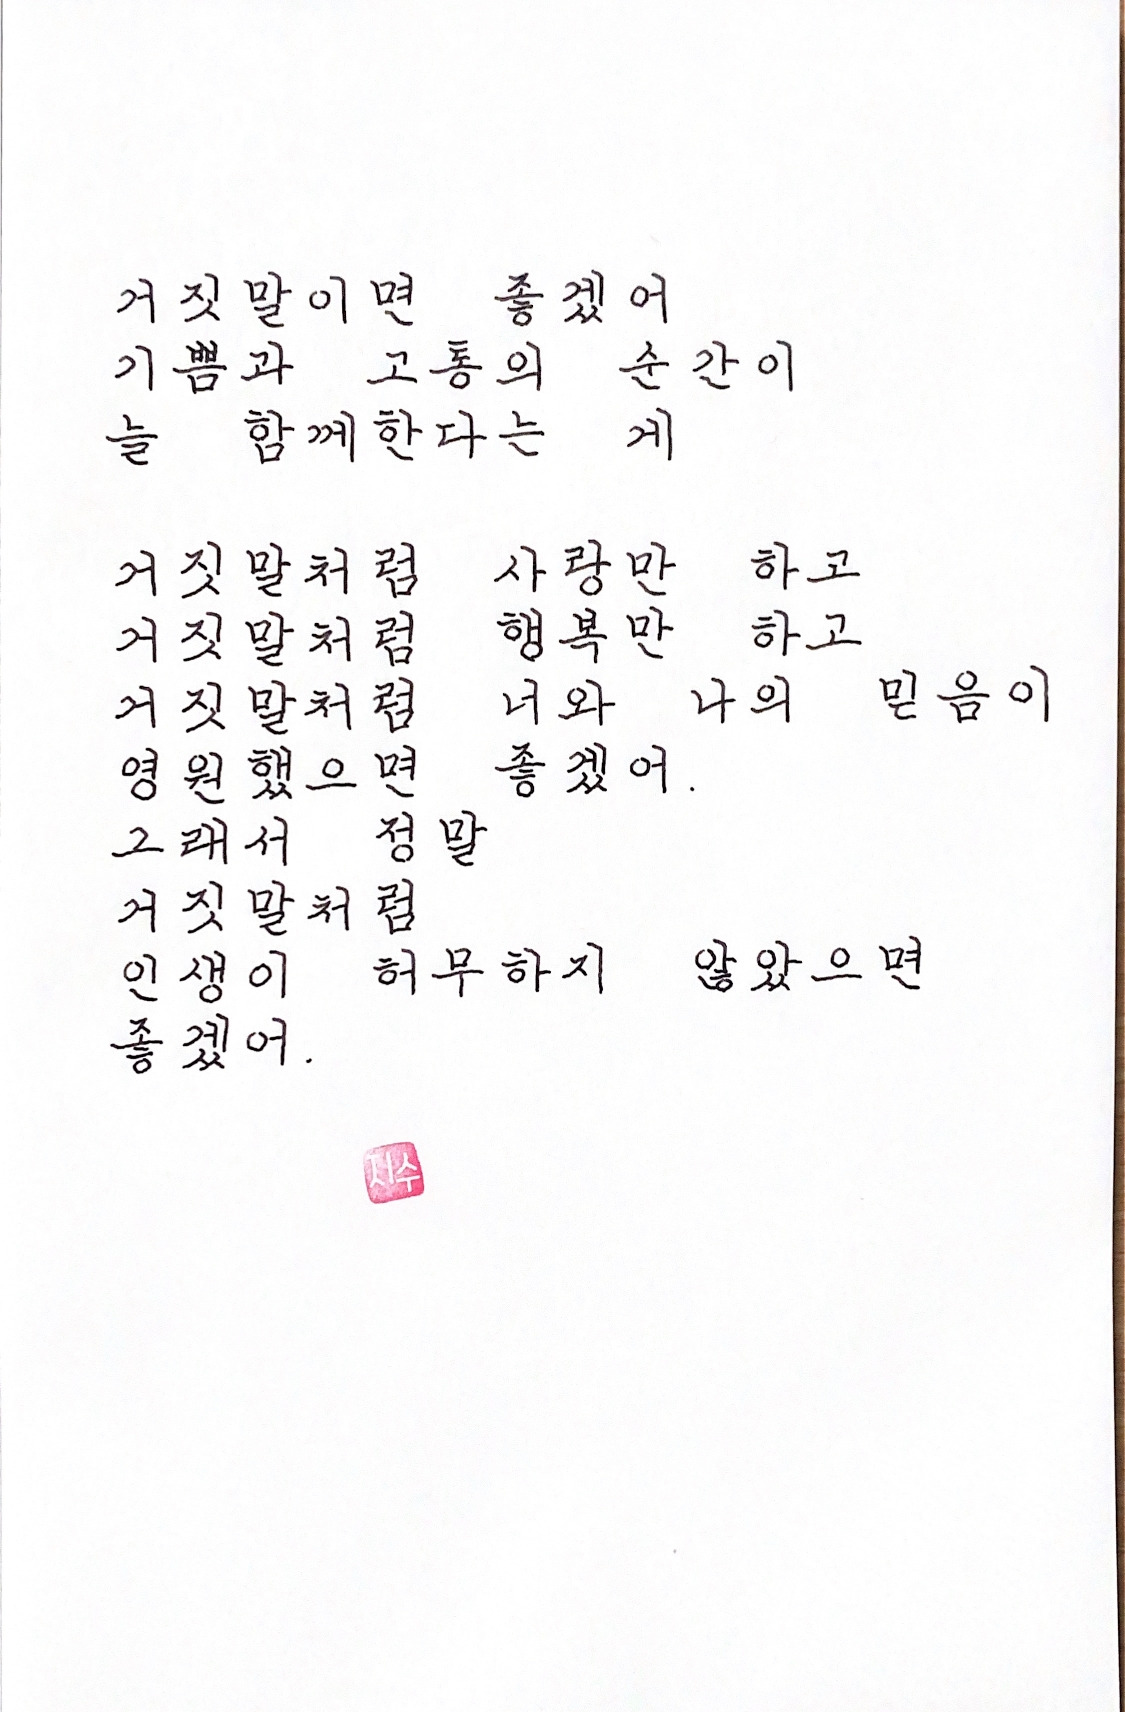 거짓말이면 좋겠어
기쁨과 고통의 순간이
늘 함께한다는 게
거짓말처럼 사랑만 하고
거짓말처럼 행복만 하고
거짓말처럼 너와 나의 믿음이
영원했으면 좋겠어.
그래서 정말
거짓말처럼
인생이 허무하지 않았으면
좋겠어.
지수